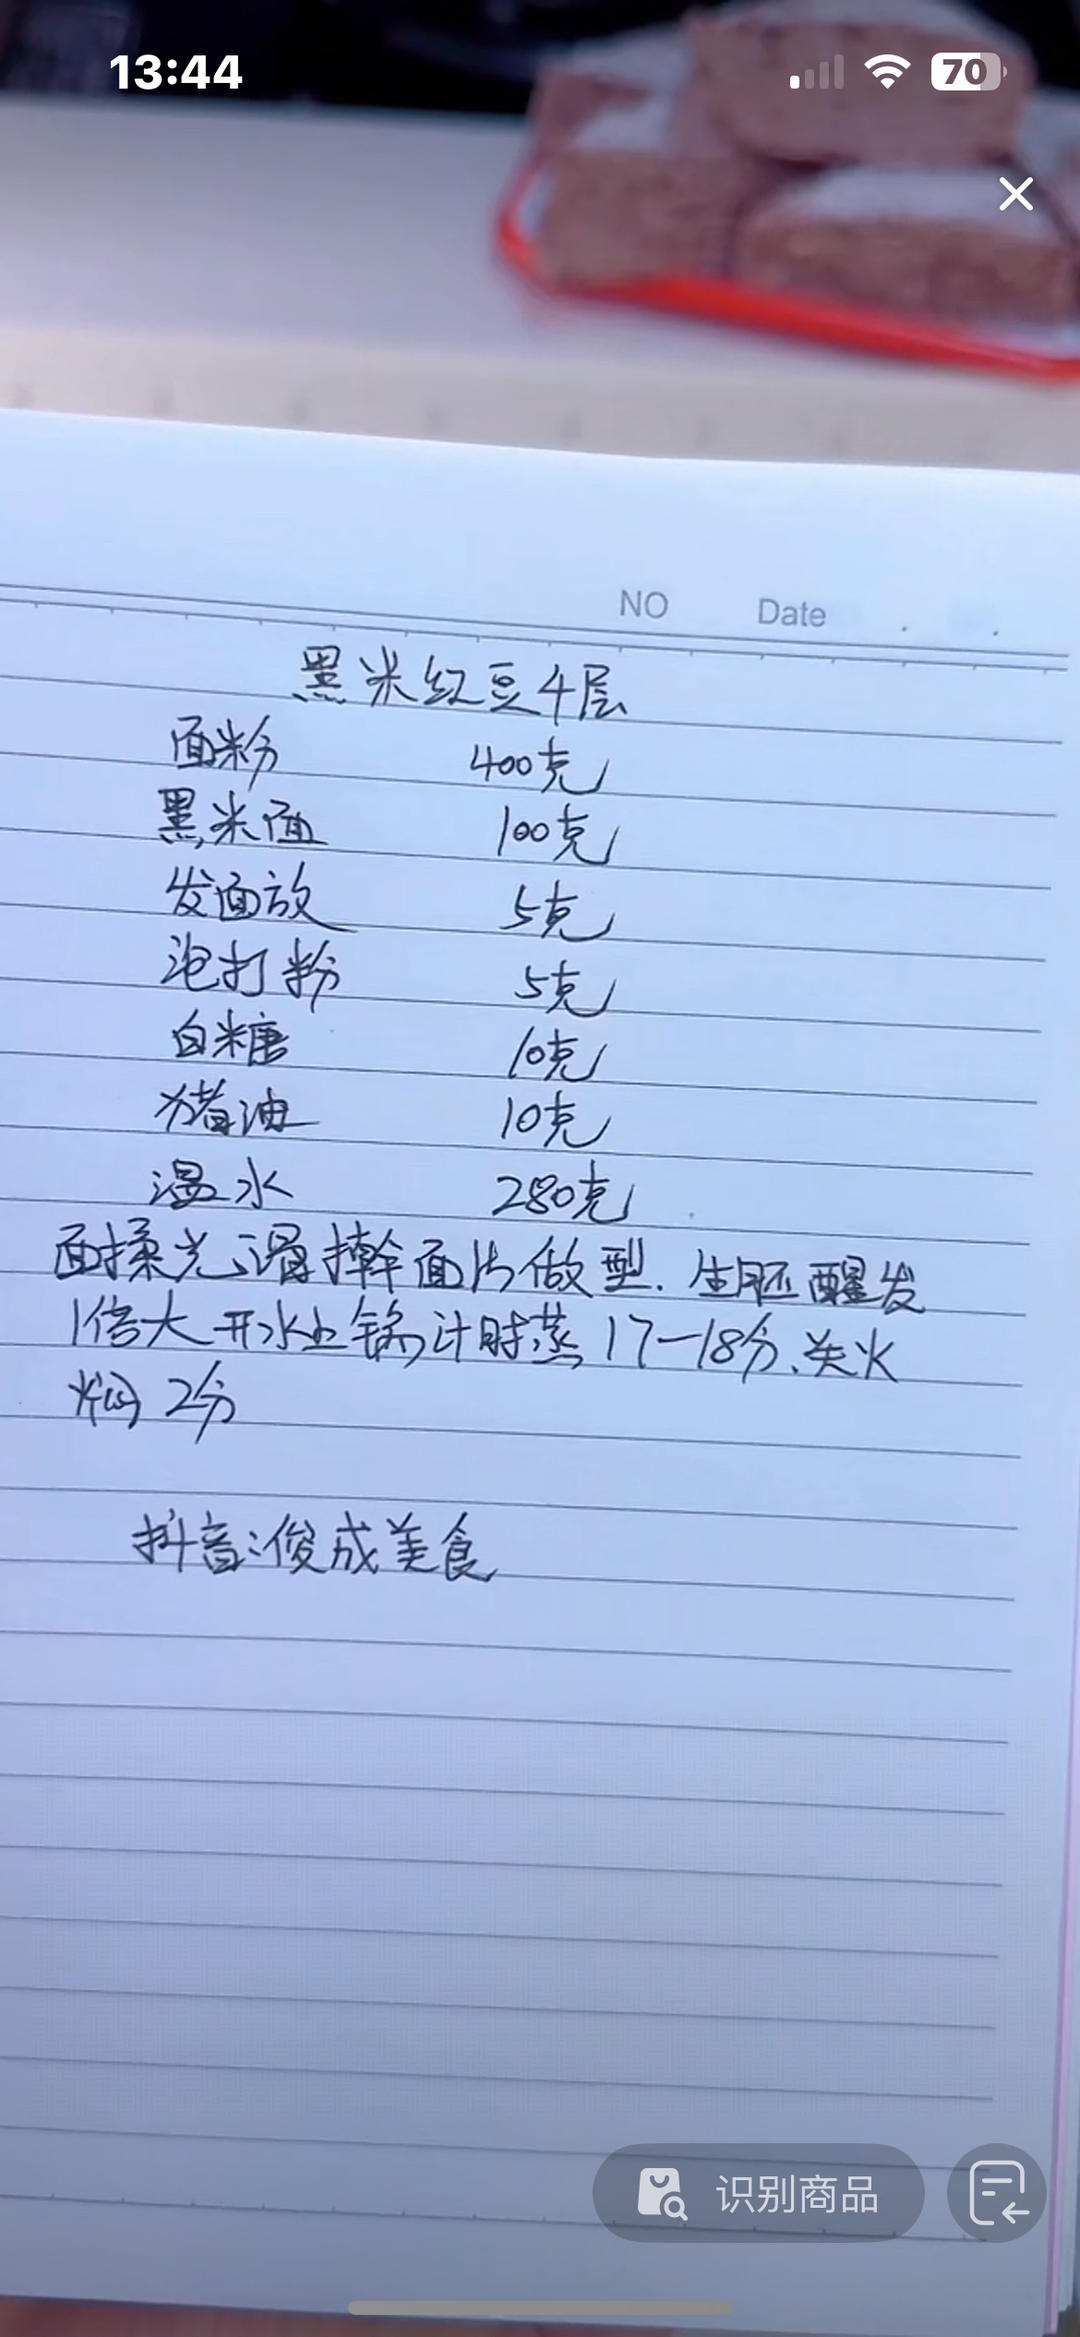 13:44
70
NO Date . .
黑米红豆千层
面粉 400克
黑米面 100克
发面放 5克
泡打粉 5克
白糖 10克
猪油 10克
温水 280克
面揉光滑擀面片做型.生胚醒发
1倍大开水上锅计时蒸17-18分、关火
焖2分
抖音:俊成美食
识别商品